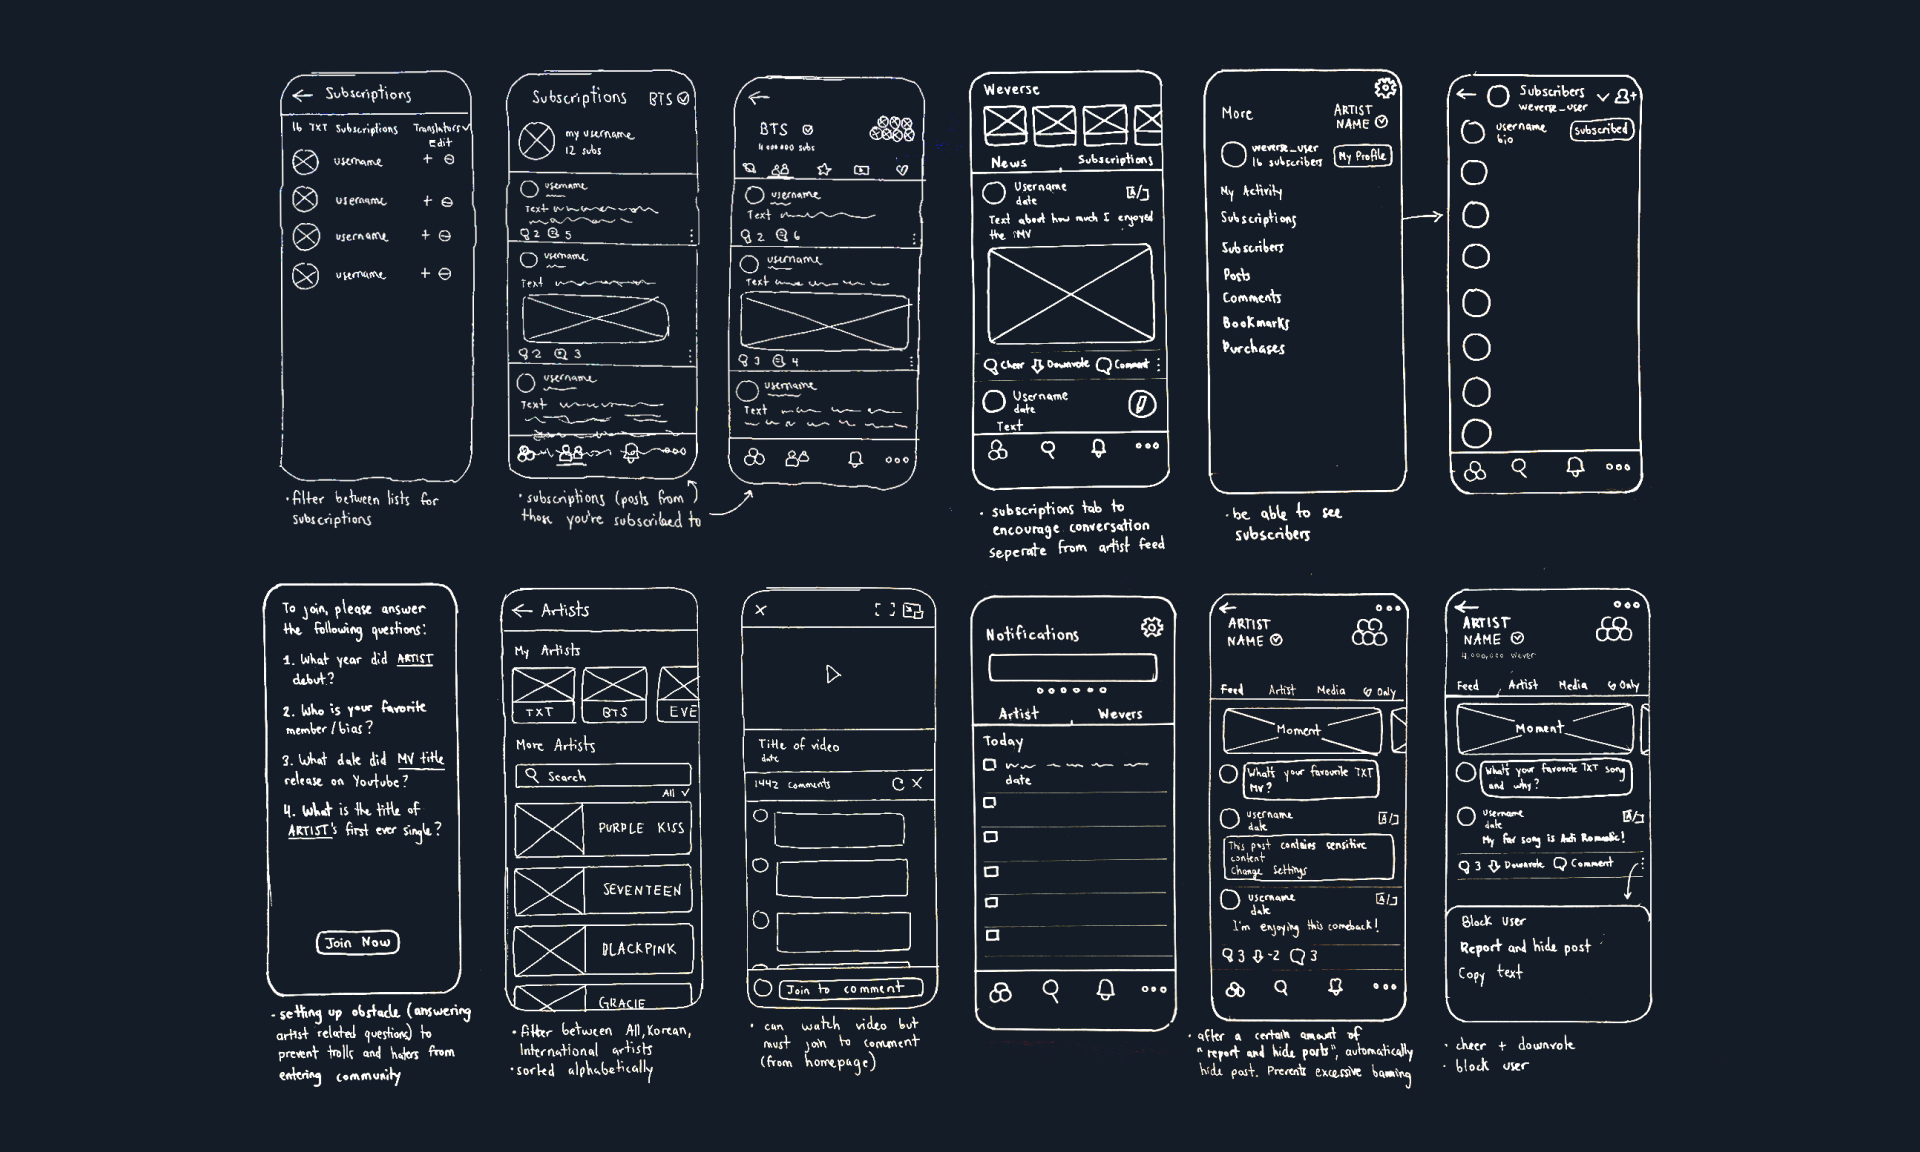 Subscriptions
16 TXT Subscriptions Translators
Edit
username
username
username
username
• filter between lists for
subscriptions
Subscriptions BTS
my username
12 subs
username
Text
2 5
username
Text
2 3
username
Text
• subscriptions (posts from
those you're subscribed to)
BTS
4 000 000 subs
username
Text
2 6
username
Text
3 4
username
Text
Weverse
News Subscriptions
Username
date
Text about how much I enjoyed
the MV
Cheer Downvote Comment
Username
date
Text
• subscriptions tab to
encourage conversation
seperate from artist feed
More
ARTIST
NAME
weverse_user
16 subscribers
My Profile
My Activity
Subscriptions
Subscribers
Posts
Comments
Bookmarks
Purchases
• be able to see
subscribers
Subscribers
weverse_user
username
bio
subscribed
To join, please answer
the following questions:
1. What year did ARTIST
debut?
2. Who is your favorite
member/bias?
3. What date did MV title
release on Youtube?
4. What is the title of
ARTIST's first ever single?
Join Now
• setting up obstacle (answering
artist related questions) to
prevent trolls and haters from
entering community
Artists
My Artists
TXT BTS EVE
More Artists
Search
All
PURPLE KISS
SEVENTEEN
BLACKPINK
GRACIE
• filter between All, Korean,
International artists
• sorted alphabetically
Title of video
date
1442 comments
Join to comment
• can watch video but
must join to comment
(from homepage)
Notifications
Artist Wevers
Today
date
ARTIST
NAME
Feed Artist Media Only
Moment
What's your favourite TXT
MV?
username
date
This post contains sensitive
content
change settings
username
date
I'm enjoying this comeback!
3 -2 3
• after a certain amount of
"report and hide posts", automatically
hide post. Prevents excessive banning
ARTIST
NAME
4,000,000 wever
Feed Artist Media Only
Moment
What's your favourite TXT song
and why?
username
date
My fav song is Anti Romantic!
3 Downvote Comment
Block user
Report and hide post
Copy text
• cheer + downvote
• block user